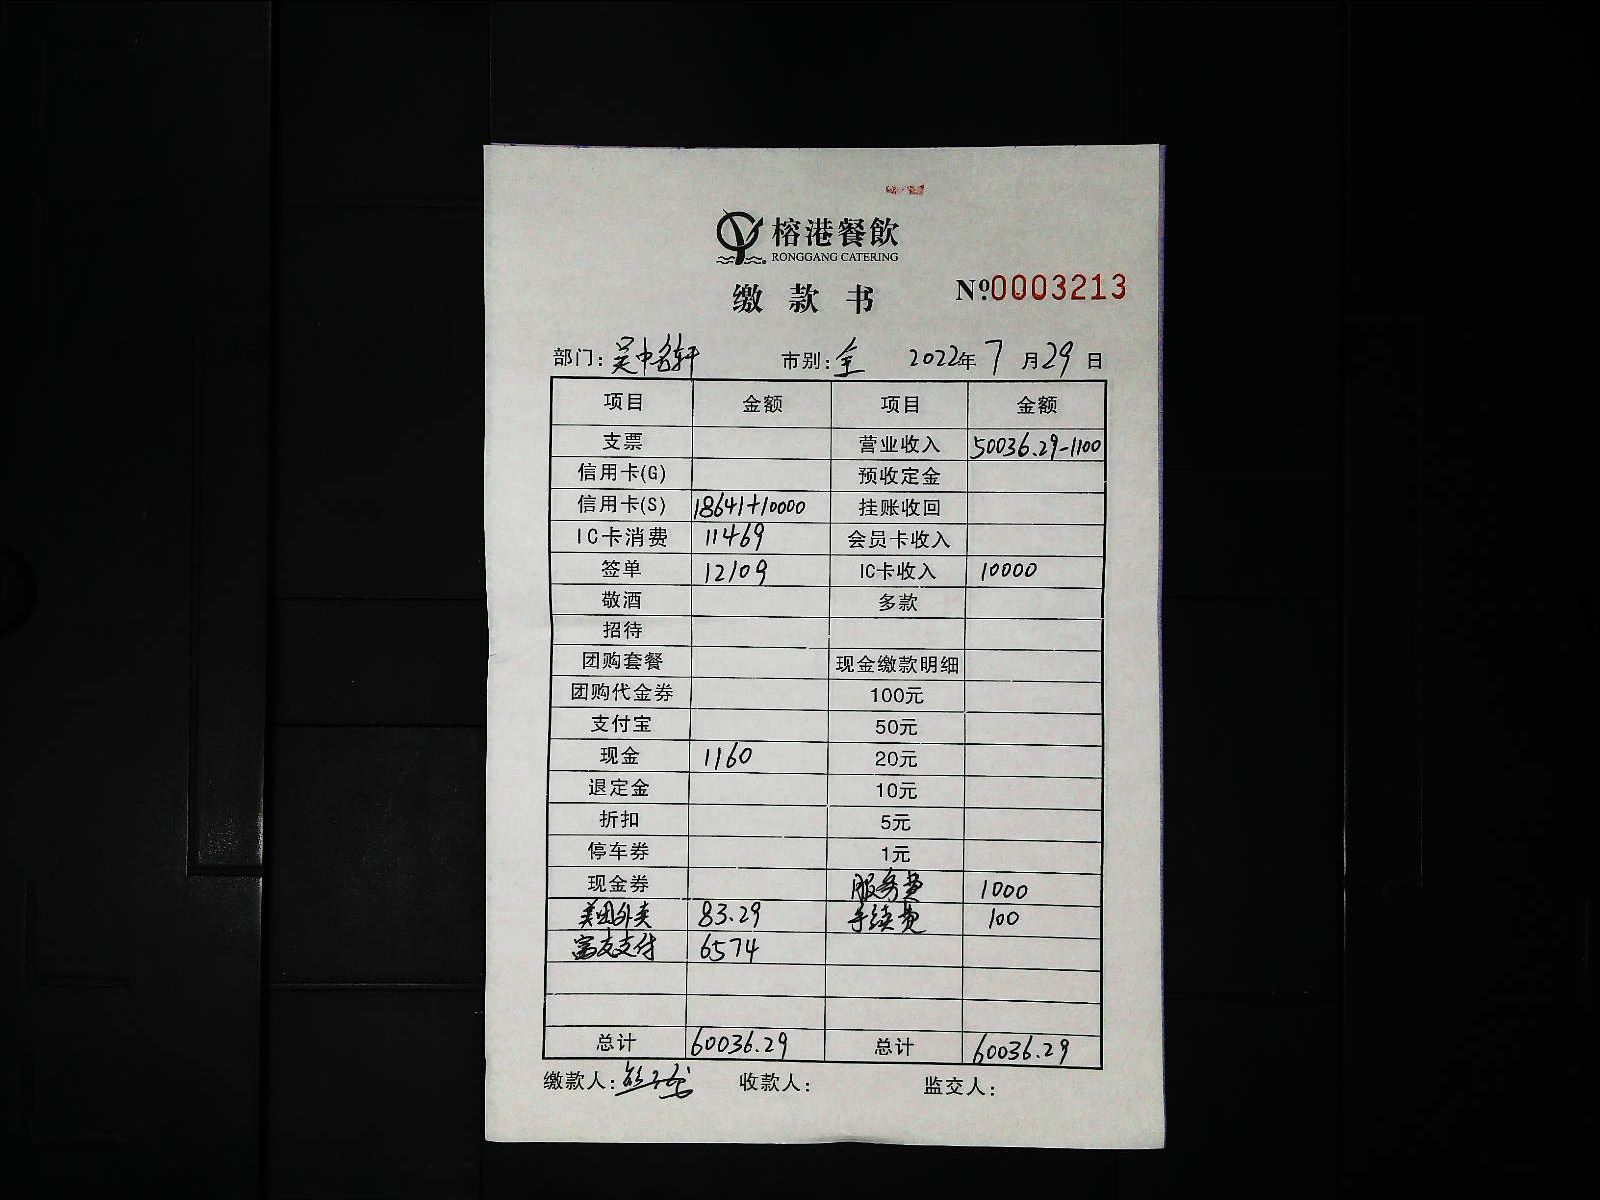 榕港餐飲
RONGGANG CATERING
缴款书
№0003213
部门：吴中名轩 市别：全 2022年7月29日
项目 金额 项目 金额
支票 营业收入 50036.29-1100
信用卡(G) 预收定金
信用卡(S) 18641+10000 挂账收回
IC卡消费 11469 会员卡收入
签单 12109 IC卡收入 10000
敬酒 多款
招待
团购套餐 现金缴款明细
团购代金券 100元
支付宝 50元
现金 1160 20元
退定金 10元
折扣 5元
停车券 1元
现金券 服务费 1000
美团外卖 83.29 手续费 100
富友支付 6574
总计 60036.29 总计 60036.29
缴款人： 收款人： 监交人：